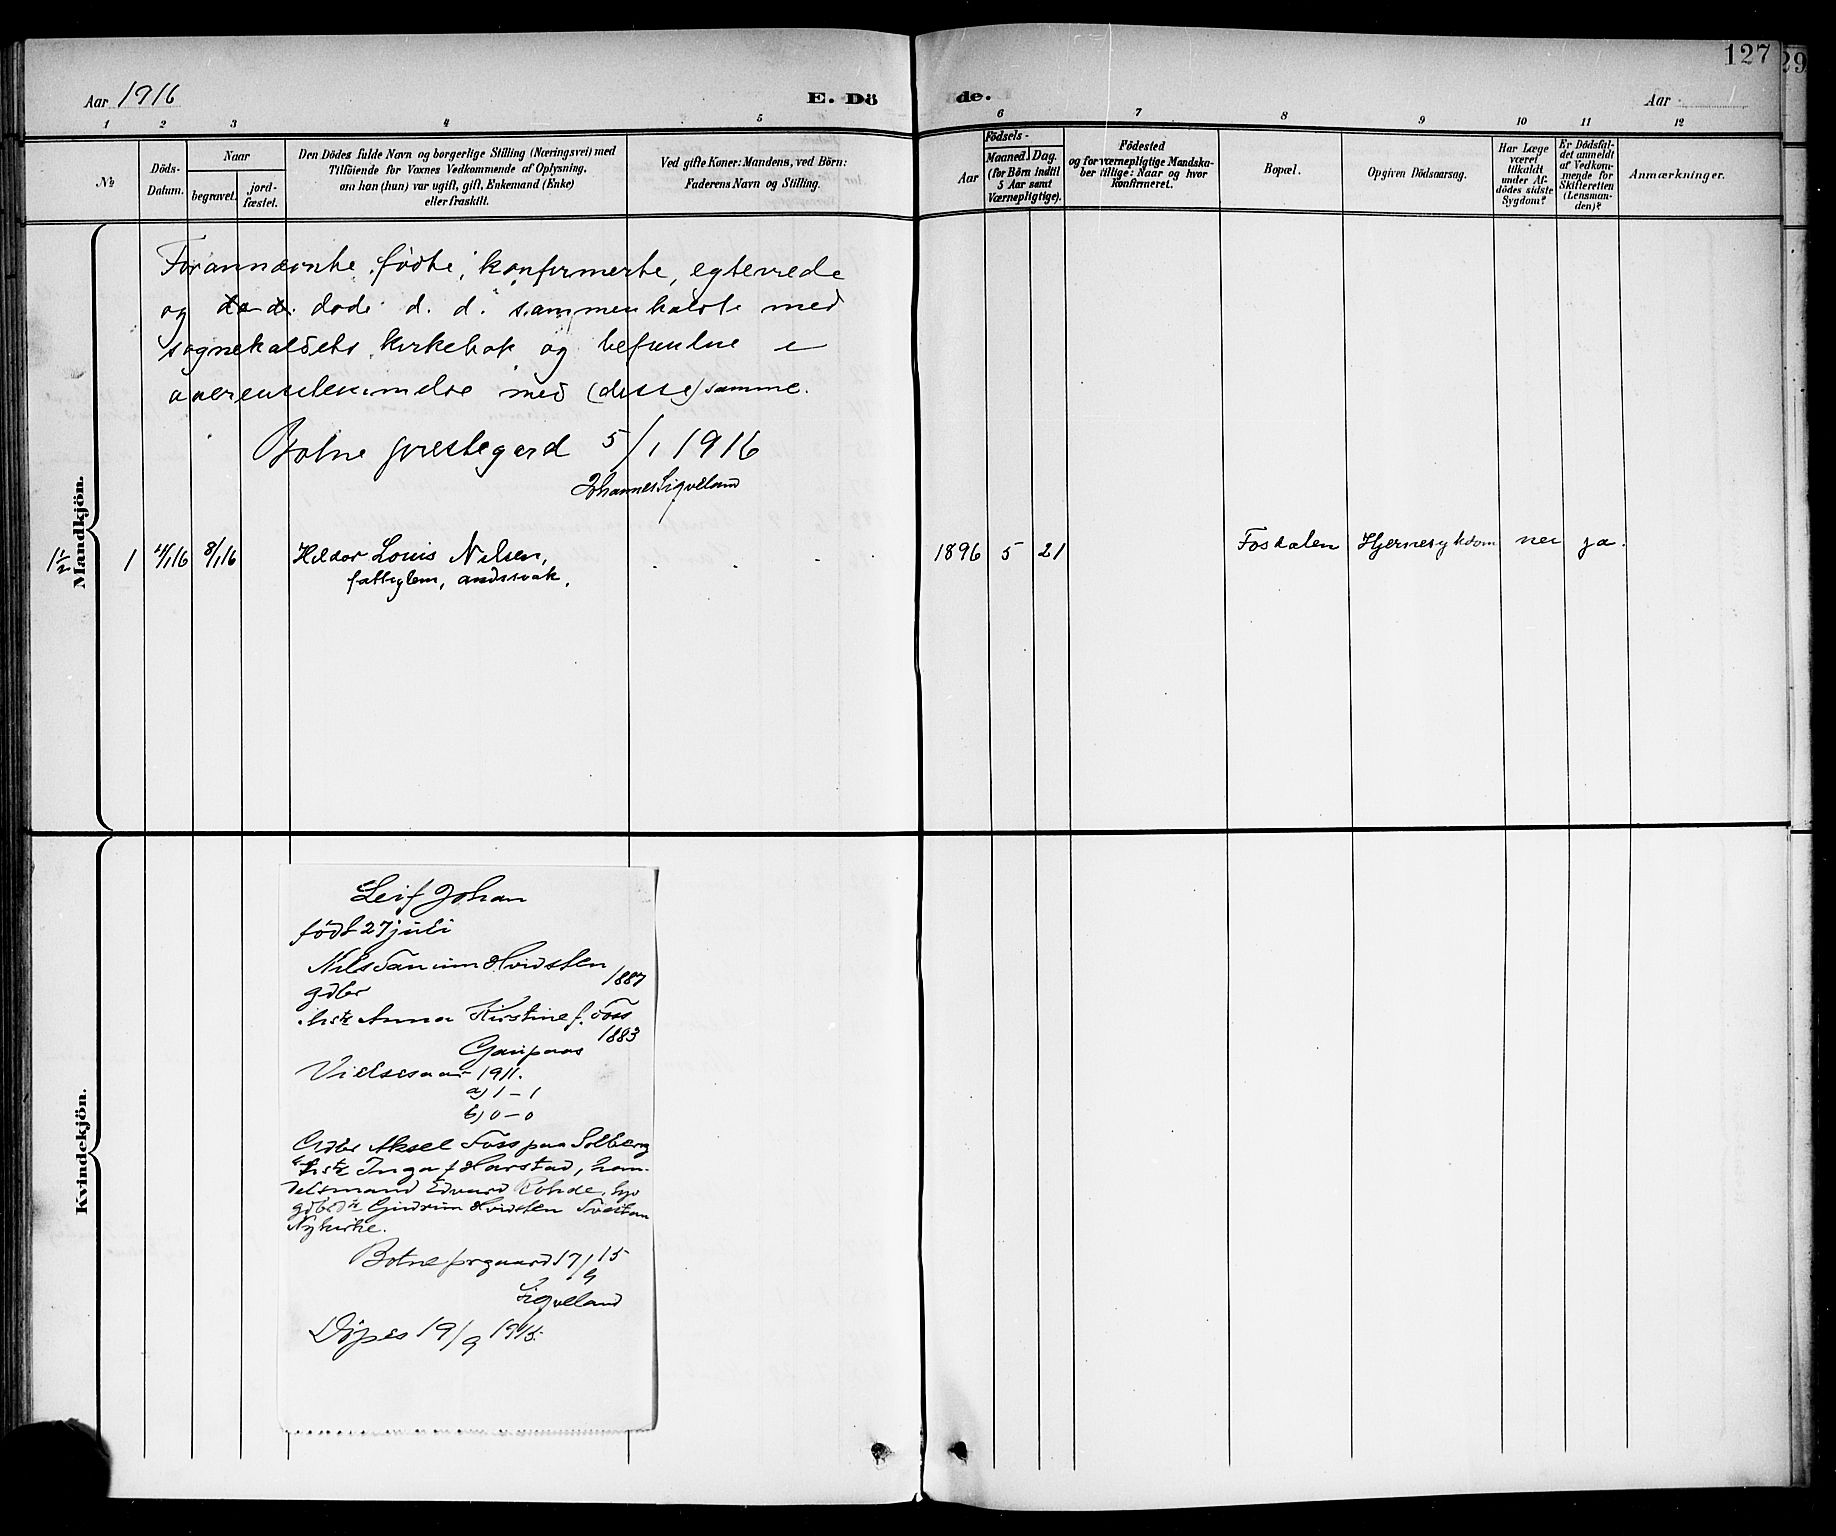 127
29
Aar 1916
E. Dö
de.
Aar 1
1 2 3 4 5 6 7 8 9 10 11 12
№
Döds-
Datum.
Naar
begravet.
jord-
fæstet.
Den Dödes fulde Navn og borgerlige Stilling (Næringsvei) med
Tilföiende for Voxnes Vedkommende af Oplysning,
om han (hun) var ugift, gift, Enkemand (Enke)
eller fraskilt.
Ved gifte Koner: Mandens, ved Börn:
Faderens Navn og Stilling.
Födsels-
Aar
Maaned. Dag.
(for Börn indtil
5 Aar samt
Værnepligtige).
Födested
og for værnepligtige Mandska-
ber tillige: Naar og hvor
konfirmeret.
Bopæl.
Opgiven Dödsaarsag.
Har Læge
været
tilkaldt
under Af-
dödes sidste
Sygdom?
Er Dödsfal-
det anmeldt
af Vedkom-
mende for
Skifteretten
(Lensman-
den)?
Anmærkninger.
Mandkjön.
Forannævnte fødte, konfirmerte, egteviede
og døde d. d. sammenholdte med
sognekaldets kirkebok og befundne i
overensstemmelse med (disse) samme.
Botne prestegard 5/1 1916
Johannes Sigveland
1 1/2 1 4/1 16 8/1 16 Hildor Louis Nilsen, 1896 5 21 Fosdalen Hjernesykdom nei ja.
fattiglem, andssvak.
Kvindekjön.
Leif Johan
født 27 juli
Nils Hvidsten
1887
gdbr
Anna Kirstine f. Foss
1883
Gaupaas
Vielsesaar 1911.
a) 1 – 1
b) 0 – 0
Gdbr Aksel Foss paa Solberg
Inga f Harstad, han-
delsmand Edvard Rohde,
Gudrun Hvidsten
Nykirke.
Botne prgaard 17/9 15
Sigveland
Døpes 19/9 1915.